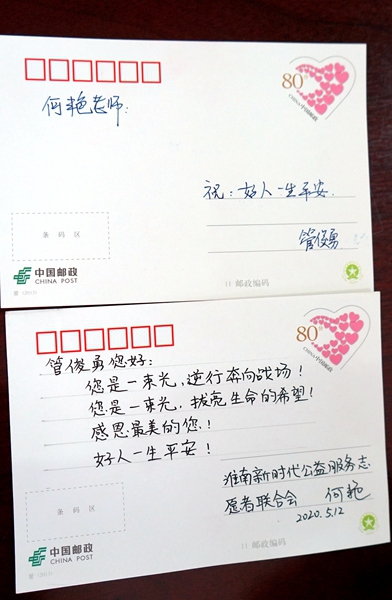 80分
CHINA中国邮政
何艳老师:
祝:好人一生平安.
管俊勇
条 码 区
中国邮政
CHINA POST
邮政编码
80分
CHINA中国邮政
管俊勇您好:
您是一束光,逆行奔向战场!
您是一束光,拨亮生命的希望!
感恩最美的您!
好人一生平安!
淮南新时代公益服务志
愿者联合会 何艳
2020.5.12
条 码 区
中国邮政
CHINA POST
邮政编码